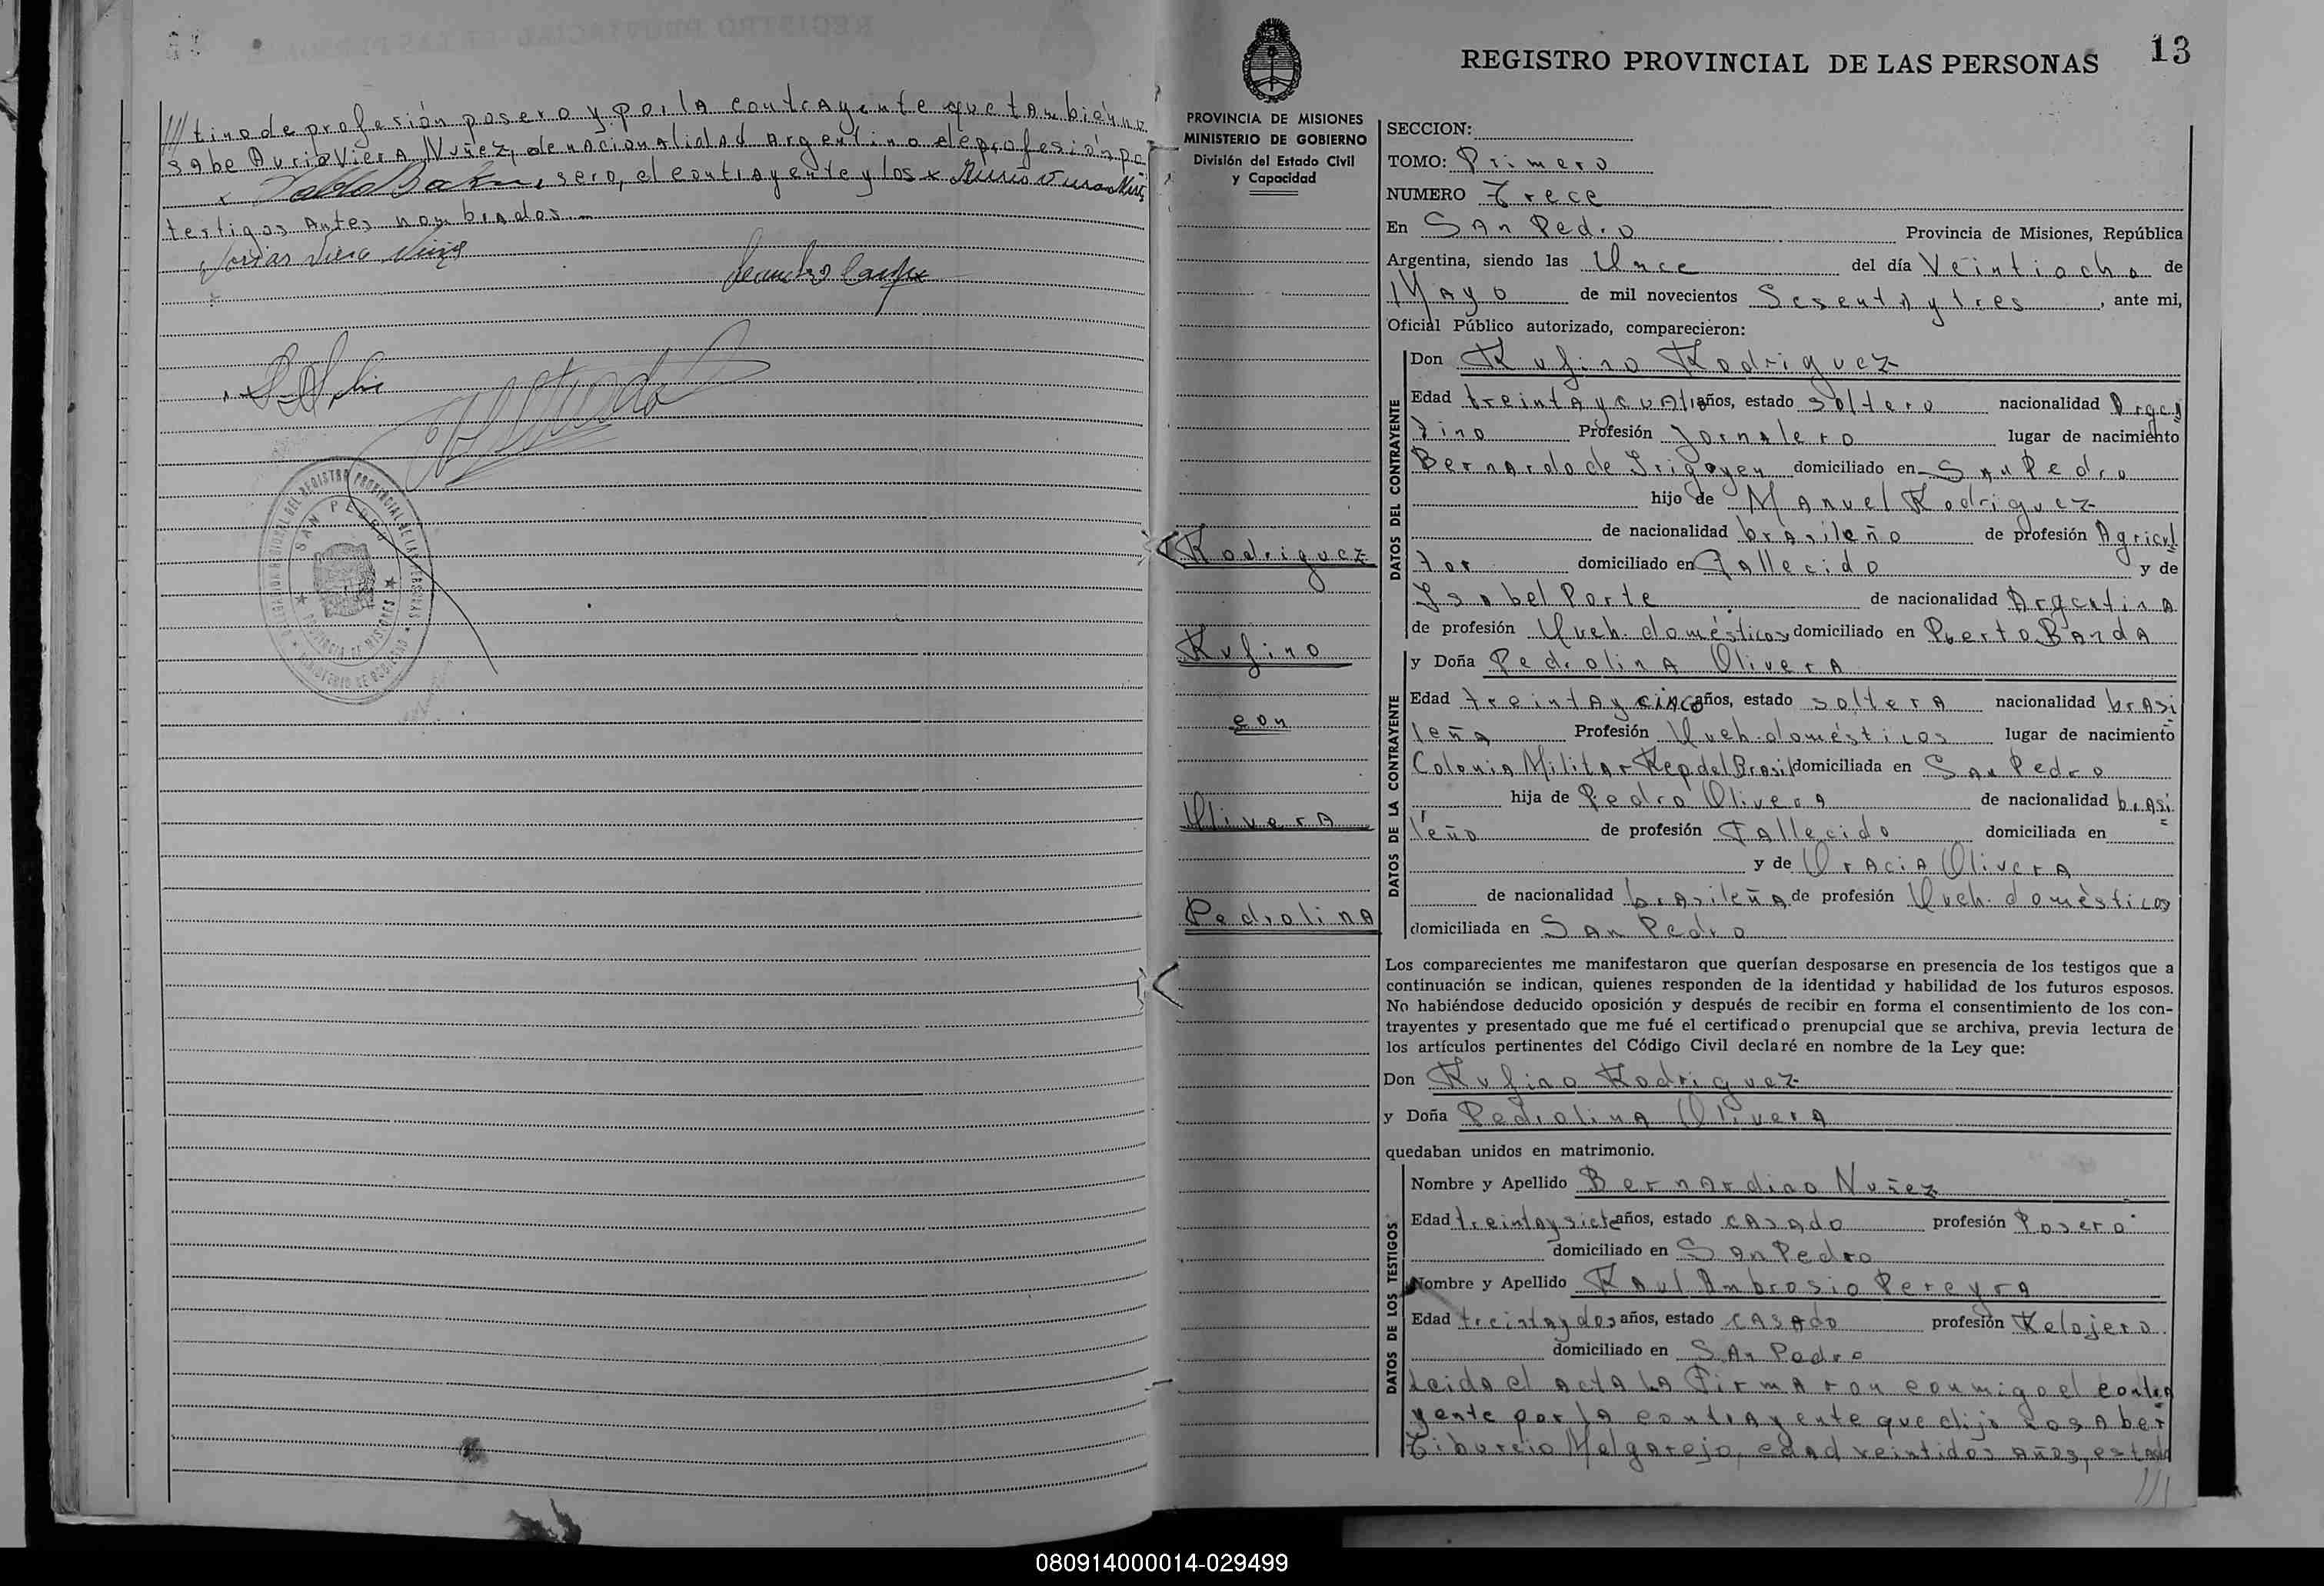 /// tino de profesión posero y por la contrayente que también no
sabe Aurio Viera Nuñez, de nacionalidad Argentino de profesión po
sero, el contrayente y los
testigos antes nombrados.-
REGISTRO PROVINCIAL DE LAS PERSONAS
SAN PEDRO
PROVINCIA DE MISIONES
MINISTERIO DE GOBIERNO
REGISTRO PROVINCIAL DE LAS PERSONAS
13
PROVINCIA DE MISIONES
MINISTERIO DE GOBIERNO
División del Estado Civil
y Capacidad
Rodriguez
Rufino
con
Olivera
Pedrolina
SECCION:
TOMO: Primero
NUMERO Trece
En San Pedro Provincia de Misiones, República
Argentina, siendo las Once del día Veintiocho de
Mayo de mil novecientos Sesenta y tres, ante mi,
Oficial Público autorizado, comparecieron:
DATOS DEL CONTRAYENTE
Don Rufino Rodriguez
Edad treinta y cuatro años, estado soltero nacionalidad Argen
tino Profesión Jornalero lugar de nacimiento
Bernardo de Irigoyen domiciliado en San Pedro
hijo de Manuel Rodriguez
de nacionalidad brasileño de profesión Agricul
tor domiciliado en Fallecido y de
Isabel Porte de nacionalidad Argentina
de profesión Queh. domésticos domiciliado en Puerto Banda
DATOS DE LA CONTRAYENTE
y Doña Pedrolina Olivera
Edad treinta y cinco años, estado soltera nacionalidad brasi
leña Profesión Queh. domésticos lugar de nacimiento
Colonia Militar Rep del Brasil domiciliada en San Pedro
hija de Pedro Olivera de nacionalidad brasi
leño de profesión Fallecido domiciliada en
y de Oracia Olivera
de nacionalidad brasileña de profesión Queh. domésticos
domiciliada en San Pedro
Los comparecientes me manifestaron que querían desposarse en presencia de los testigos que a
continuación se indican, quienes responden de la identidad y habilidad de los futuros esposos.
No habiéndose deducido oposición y después de recibir en forma el consentimiento de los con-
trayentes y presentado que me fué el certificado prenupcial que se archiva, previa lectura de
los artículos pertinentes del Código Civil declaré en nombre de la Ley que:
Don Rufino Rodriguez
y Doña Pedrolina Olivera
quedaban unidos en matrimonio.
DATOS DE LOS TESTIGOS
Nombre y Apellido Bernardino Nuñez
Edad treinta y siete años, estado casado profesión Posero
domiciliado en San Pedro
Nombre y Apellido Raul Ambrosio Pereyra
Edad treinta y dos años, estado casado profesión Relojero
domiciliado en San Pedro
Leida el acta la firmaron conmigo el contra
yente por la contrayente que dijo no saber
Tiburcio Melgarejo, edad veintidos años, estado
///
080914000014-029499